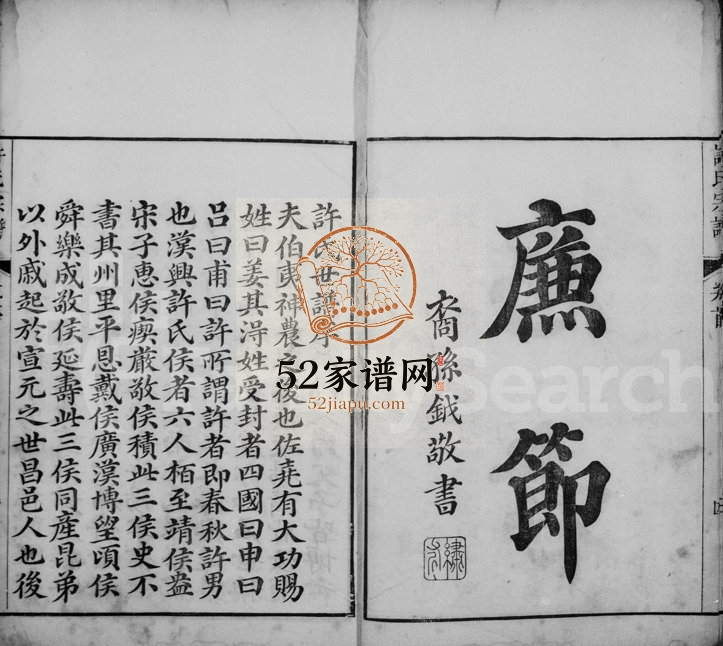 許氏宗譜
卷首
四
廉節
裔孫鉞敬書
許氏世譜序
夫伯夷神農之後也佐堯有大功賜
姓曰姜其淂姓受封者四國曰申曰
呂曰甫曰許所謂許者即春秋許男
也漢興許氏侯者六人栢至靖侯盎
宋子惠侯瘈嚴敬侯積此三侯史不
書其州里平恩戴侯廣漢博望頃侯
舜樂成敬侯延壽此三侯同產昆弟
以外戚起於宣元之世昌邑人也後
52家谱网
52jiapu.com
Search